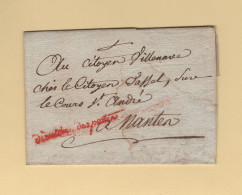 Au Citoyen Villenave
chés le Citoyen Taffel, Sur
le Cours St. André
A Nantes